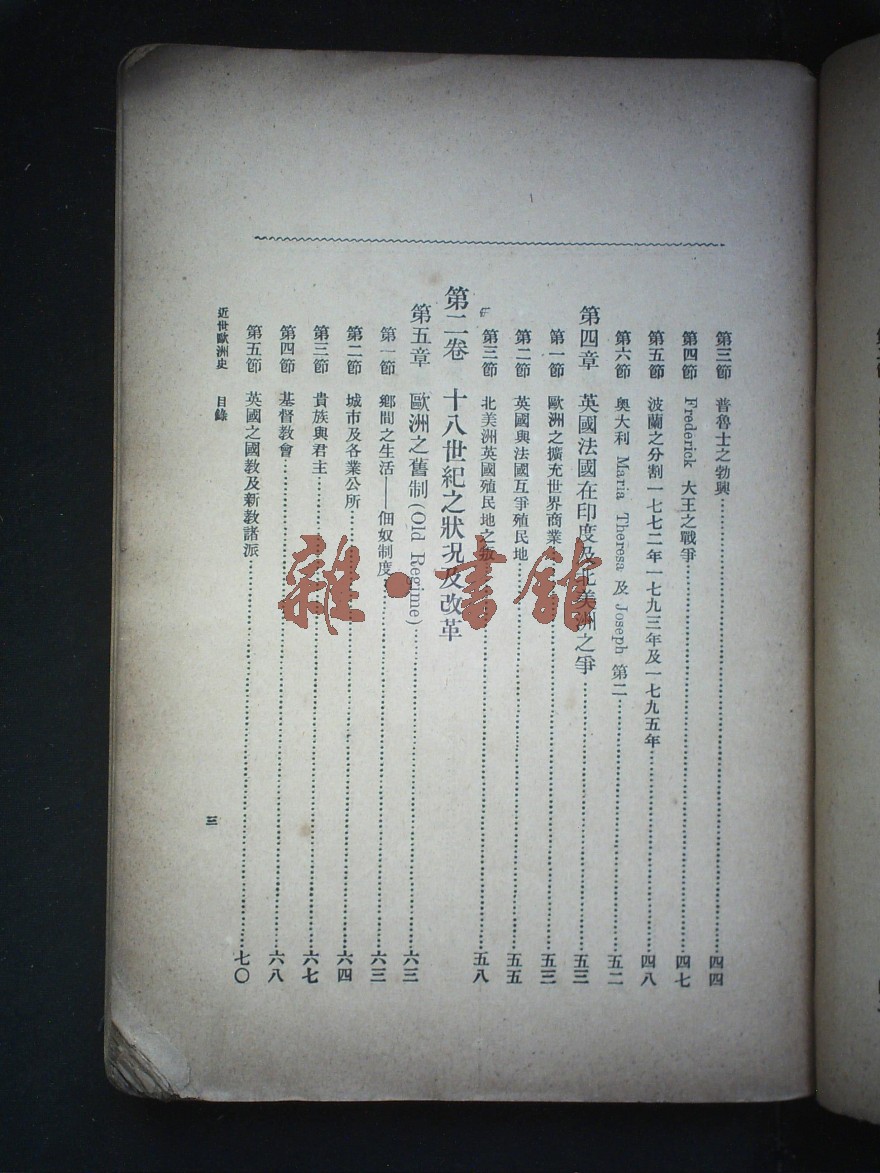 第三節 普魯士之勃興……四四
第四節 Frederick 大王之戰爭……四七
第五節 波蘭之分割一七七二年一七九三年及一七九五年……四八
第六節 奧大利 Maria Theresa 及 Joseph 第二……五二
第四章 英國法國在印度及北美洲之爭……五三
第一節 歐洲之擴充世界商業……五三
第二節 英國與法國互爭殖民地……五五
第三節 北美洲英國殖民地之叛……五八
第二卷 十八世紀之狀況及改革
第五章 歐洲之舊制 (Old Regime)……六三
第一節 鄉間之生活——佃奴制度……六三
第二節 城市及各業公所……六四
第三節 貴族與君主……六七
第四節 基督教會……六八
第五節 英國之國教及新教諸派……七〇
近世歐洲史 目錄
三
雜·書館